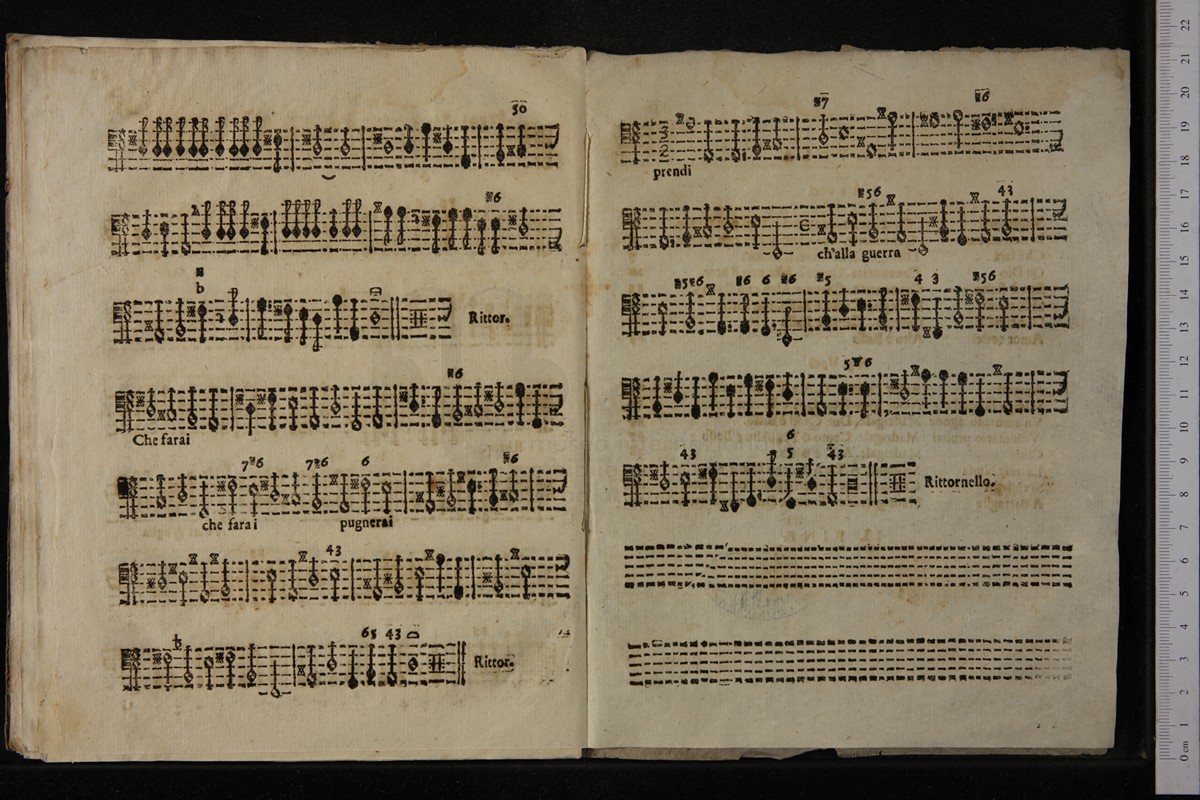 50
6
b
Rittor.
6
Che farai
7 6 7 6 6 6
che farai pugnerai
43
6 43
Rittor.
7 6
prendi
56 43
ch'alla guerra
5 6 6 6 6 5 4 3 56
5 6
6
43 5 43
Rittornello.
0 cm 1 2 3 4 5 6 7 8 9 10 11 12 13 14 15 16 17 18 19 20 21 22